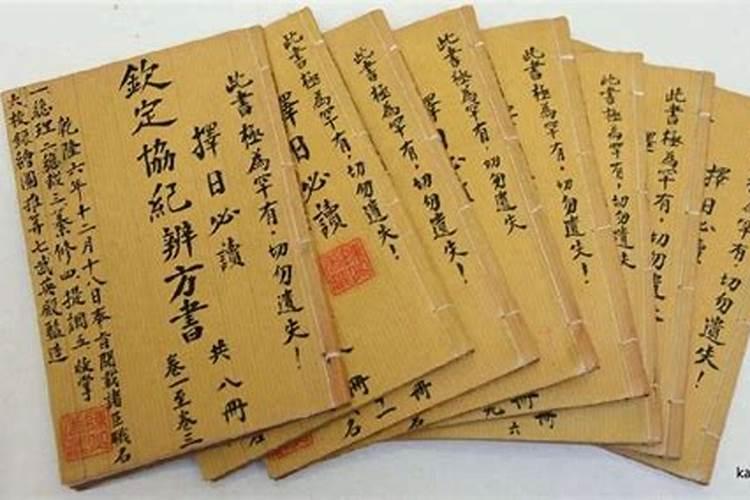 此書極為罕有,切勿遺失!
擇日必讀
共八冊
欽定協紀辨方書
卷一至卷三
乾隆六年十二月十八日奉旨開載諸臣職名
一總理二總裁三纂修四提調五收掌
六校錄繪圖推算七武英殿監造
此書極為罕有,切勿遺失!
擇日必讀
此書極為罕有,切勿遺失!
冊
名
此書極為罕有,切勿遺失
冊
此書極為罕有,切勿遺失!
冊
此書極為罕有,切勿遺失
冊
六
此書極為罕有,切勿遺
罕有,切勿遺失!
擇日必讀
ka